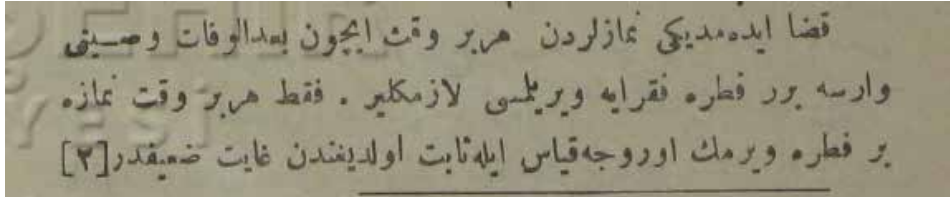 قضا ايده‌مديكى نمازلردن هربر وقت ايچون بعدالوفات وصيتى
وارسه برر فطره فقرايه ويرلمسى لازمكلير . فقط هربر وقت نمازه
بر فطره ويرمك اوروجه قياس ايله ثابت اولديغندن غايت ضعيفدر[٢]